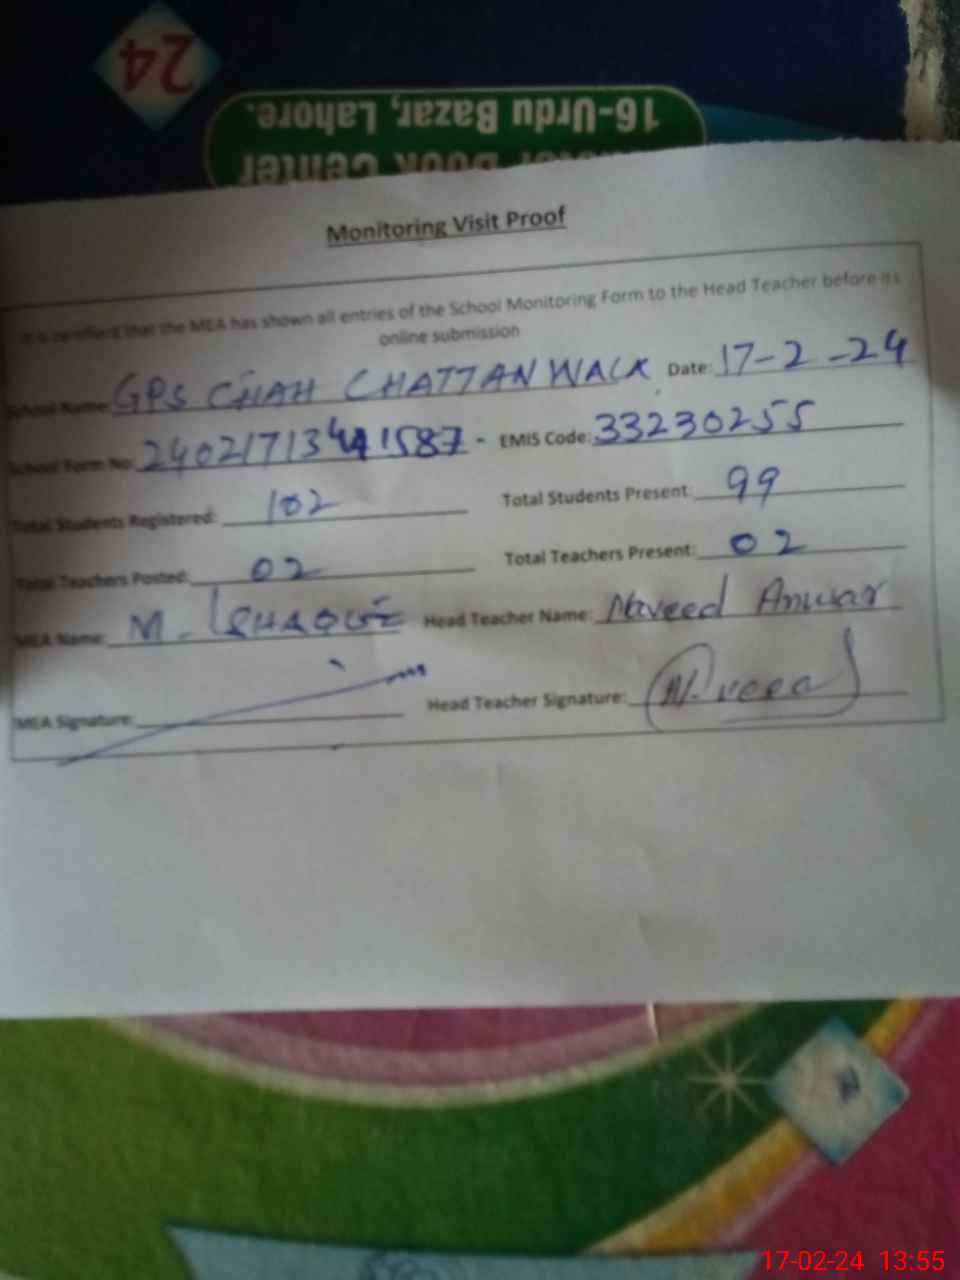 24
16-Urdu Bazar, Lahore.
Book Center
Monitoring Visit Proof
It is certified that the MEA has shown all entries of the School Monitoring Form to the Head Teacher before its
online submission
School Name: GPS CHAH CHATTAN WALA Date: 17-2-24
School Form No: 2402171341587 - EMIS Code: 33230255
Total Students Registered: 102 Total Students Present: 99
Total Teachers Posted: 02 Total Teachers Present: 02
MEA Name: M. ISHAQUE Head Teacher Name: Naveed Anwar
MEA Signature: Head Teacher Signature: Naveed
17-02-24 13:55